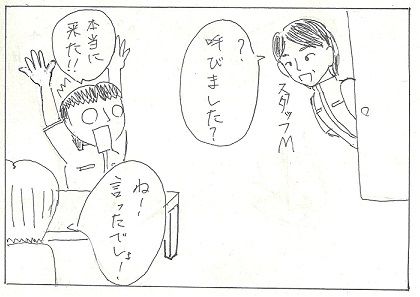 ？
呼びました？
スタッフM
本当に
来た!!
ねー
言ったでしょ！